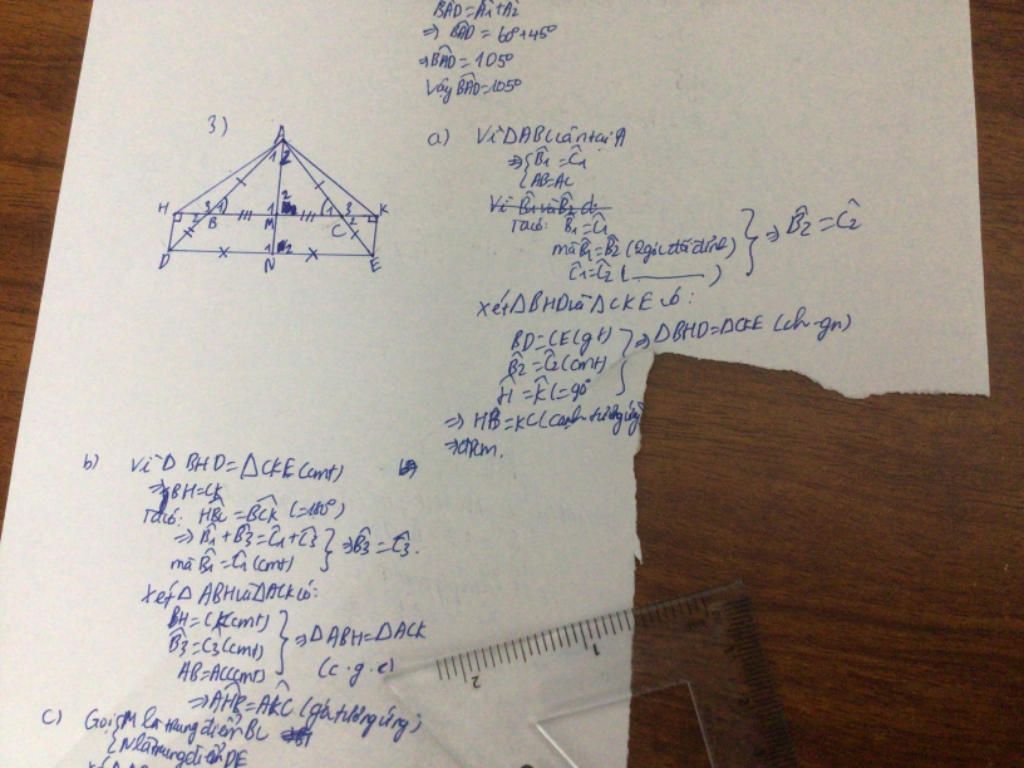 BÂD = Â1 + Â2
⇒ BÂD = 60° + 45°
⇒ BÂD = 105°
Vậy BÂD = 105°
3)
A
1 2
H 3 1 2 1 3 K
2 B M C 2
D 1 N 2 E
a) Vì ΔABC cân tại A
⇒ { B̂1 = Ĉ1
AB = AC
Ta có: B̂1 = Ĉ1
mà B̂1 = B̂2 (2 góc đối đỉnh)
Ĉ1 = Ĉ2 ( ——— )
} ⇒ B̂2 = Ĉ2
Xét ΔBHD và ΔCKE có:
BD = CE (gt)
B̂2 = Ĉ2 (cmt)
Ĥ = K̂ (= 90°
} ⇒ ΔBHD = ΔCKE (ch-gn)
⇒ HB = KC (cạnh tương ứng)
⇒ đpcm.
b) Vì Δ BHD = ΔCKE (cmt)
⇒ BH = CK
Ta có: HB̂C = BĈK (= 180°)
⇒ B̂1 + B̂3 = Ĉ1 + Ĉ3
mà B̂1 = Ĉ1 (cmt)
} ⇒ B̂3 = Ĉ3.
Xét Δ ABH và ΔACK có:
BH = CK (cmt)
B̂3 = Ĉ3 (cmt)
AB = AC (cmt)
} ⇒ ΔABH = ΔACK
(c.g.c)
⇒ AĤB = AK̂C (góc tương ứng)
c) Gọi { M là trung điểm BC
N là trung điểm DE